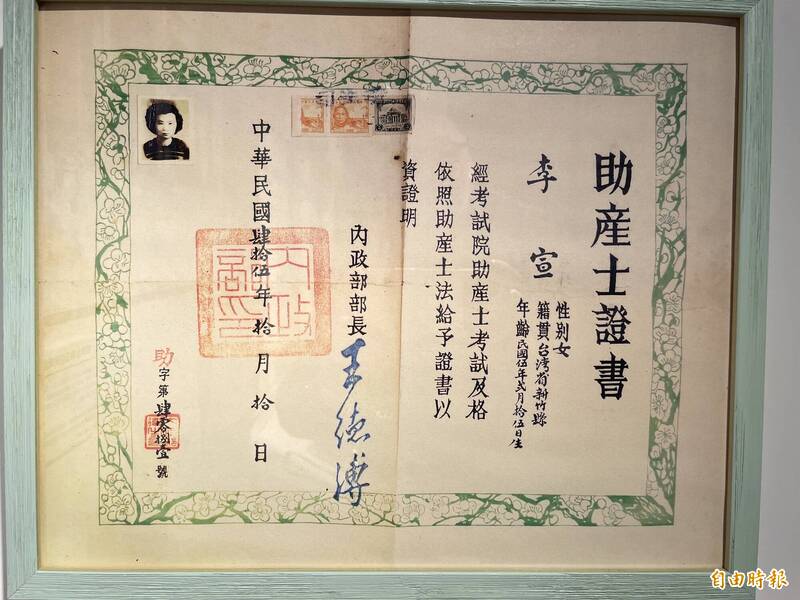 助產士證書
李宣
性別女
籍貫台湾省新竹縣
年齡民國伍年弍月拾五日生
經考試院助產士考試及格
依照助產士法給予證書以
資證明
內政部部長
王德溥
中華民國肆拾伍年拾月拾日
內政部印
助字第肆零捌壹號
自由時報